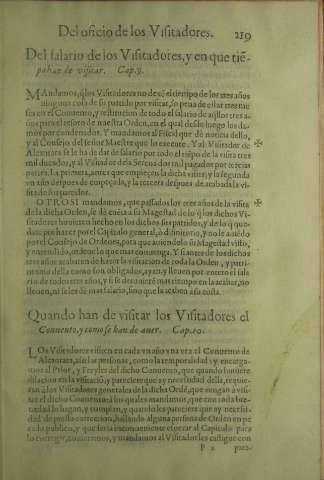 Del oficio de los Visitadores. 219
Del salario de los Visitadores, y en que tiē-
po han de visitar. Cap. 9.
MAndamos, q̃ los Visitadores no dexē el tiempo de los tres años
ninguna cosa de su partido por visitar, so pena de estar tres me
ses en el Conuento, y restitucion de todo el salario de aq̃llos tres a-
ños para el tesoro de nuestra Orden, en el qual desde luego los da-
mos por condenados. Y mandamos al Fiscal que dè noticia dello,
y al Consejo del Señor Maestre que lo execute. Y al Visitador de
Alcantara se le ha de dar de salario por todo el tiēpo de la visita tres
mil ducados, y al Visitador de la Serena dos mil pagados por tercias
partes. La primera, antes que empiecen la dicha visita; y la segunda
vn año despues de empeçada, y la tercera despues de acabada la visi-
ta de sus partidos.
OTROSI mandamos, que passados los tres años de la visita
de la dicha Orden, se dè cuēta a su Magestad de lo q̃ los dichos Vi-
sitadores huuieren hecho en los dichos sus partidos, y de lo q̃ que-
dare por hazer por el Capitulo general, ò difinitorio, y no le auiendo
por el Consejo de Ordenes, para que auiendolo su Magestad visto,
y entendido, ordene lo que mas conuenga. Y si antes de los dichos
tres años acabaren de hazer la visitacion de toda la Orden, y patri-
monio della como son obligados, ayan, y lleuen por entero el sala-
rio de todos tres años, y si se detuuieren mas tiempo en la acabar, no
lleuen, ni se les dè mas salario, sino que la acaben a su costa.
Quando han de visitar los Visitadores el
Conuento, y como se han de auer. Cap. 10.
LOs Visitadores visiten en cada vn año vna vez el Conuento de
Alcantara, assi las personas, como la temporalidad: y encarga-
mos al Prior, y Freyles del dicho Conuento, que quando huuiere
dilacion en la visitacion, y pareciere que ay necessidad della, requie-
ran a los Visitadores generales de la dicha Ordē, que vengan a visi-
tar el dicho Conuento: a los quales mandamos, que con toda bre-
uedad lo hagan, y cumplan, y quando les pareciere que ay necessi-
dad de presta correccion, hallando alguna persona de Orden en pe-
cado publico, y que seria inconueniente esperar al Capitulo para
lo corregir, cometemos, y mandamos al Visitador les castigue con
P 2 pare-